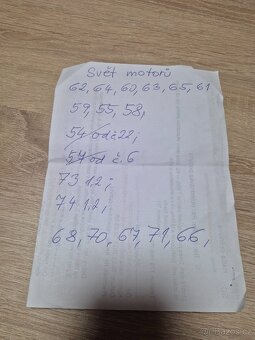 Svět motorů
62, 64, 60, 63, 65, 61
59, 55, 58,
54 od č 22;
57 od č. 6
73 1,2;
74 1,2;
68, 70, 67, 71, 66,